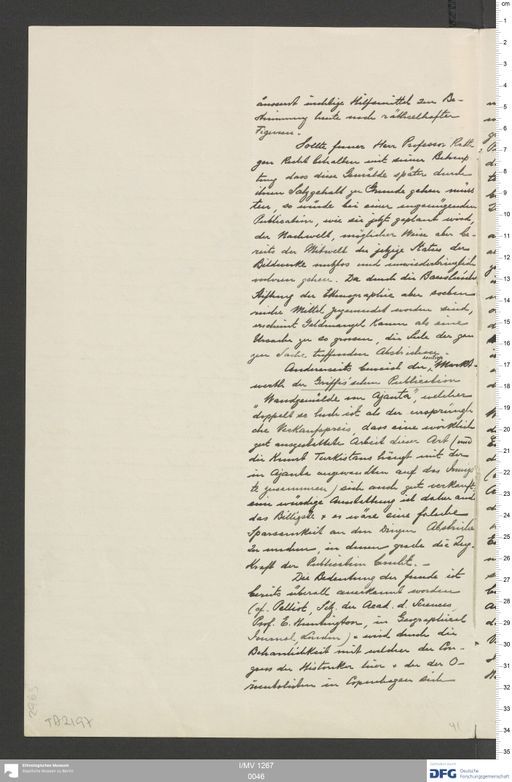 äusserst wichtige Hilfsmittel zur Be-
stimmung heute noch räthselhafter
Figuren.
Sollte ferner Herr Professor Rath-
gen Recht behalten mit seiner Behaup-
tung dass diese Gemälde später durch
ihren Salzgehalt zu Grunde gehen müss-
ten, so würde bei einer ungenügenden
Publication, wie sie jetzt geplant wird,
der Nachwelt, möglicher Weise aber be-
reits der Mitwelt der jetzige Status der
Bildwerke nutzlos und unwiederbringlich
verloren gehen. Da durch die Baessler'sche
Stiftung der Ethnographie aber soeben
reiche Mittel zugewendet worden sind,
erscheint Geldmangel kaum als eine
Ursache zu so grossen, die Seele der gan-
zen Sache treffenden Abstrichen.
Andererseits beweist der heutige Markt-
werth der Griffis'schen Publication
"Wandgemälde von Ajanta", welcher
doppelt so hoch ist als der ursprüngli-
che Verkaufspreis, dass eine wirklich
gut ausgestattete Arbeit dieser Art (und
die Kunst Turkistans hängt mit der
in Ajanta angewandten auf das Innig-
te zusammen) sich auch gut verkauft
eine würdige Ausstattung ist daher auch
das Billigste & es wäre eine falsche
Sparsamkeit an den Dingen Abstriche
zu machen, in denen grade die Zug-
kraft der Publication beruht. –
Die Bedeutung der Funde ist
bereits überall anerkannt worden
(cf. Pelliot, Sitz. der Acad. d. Sciences,
Prof. E. Huntington, in Geographical
Journal, London) & wird durch die
Behaarlichkeit mit welcher der Con-
gress der Historiker hier & der der O-
rientalisten in Copenhagen sich
2965
TA 2197
41
I/MV 1267
0046
Ethnologisches Museum
Staatliche Museen zu Berlin
DFG Deutsche
Forschungsgemeinschaft